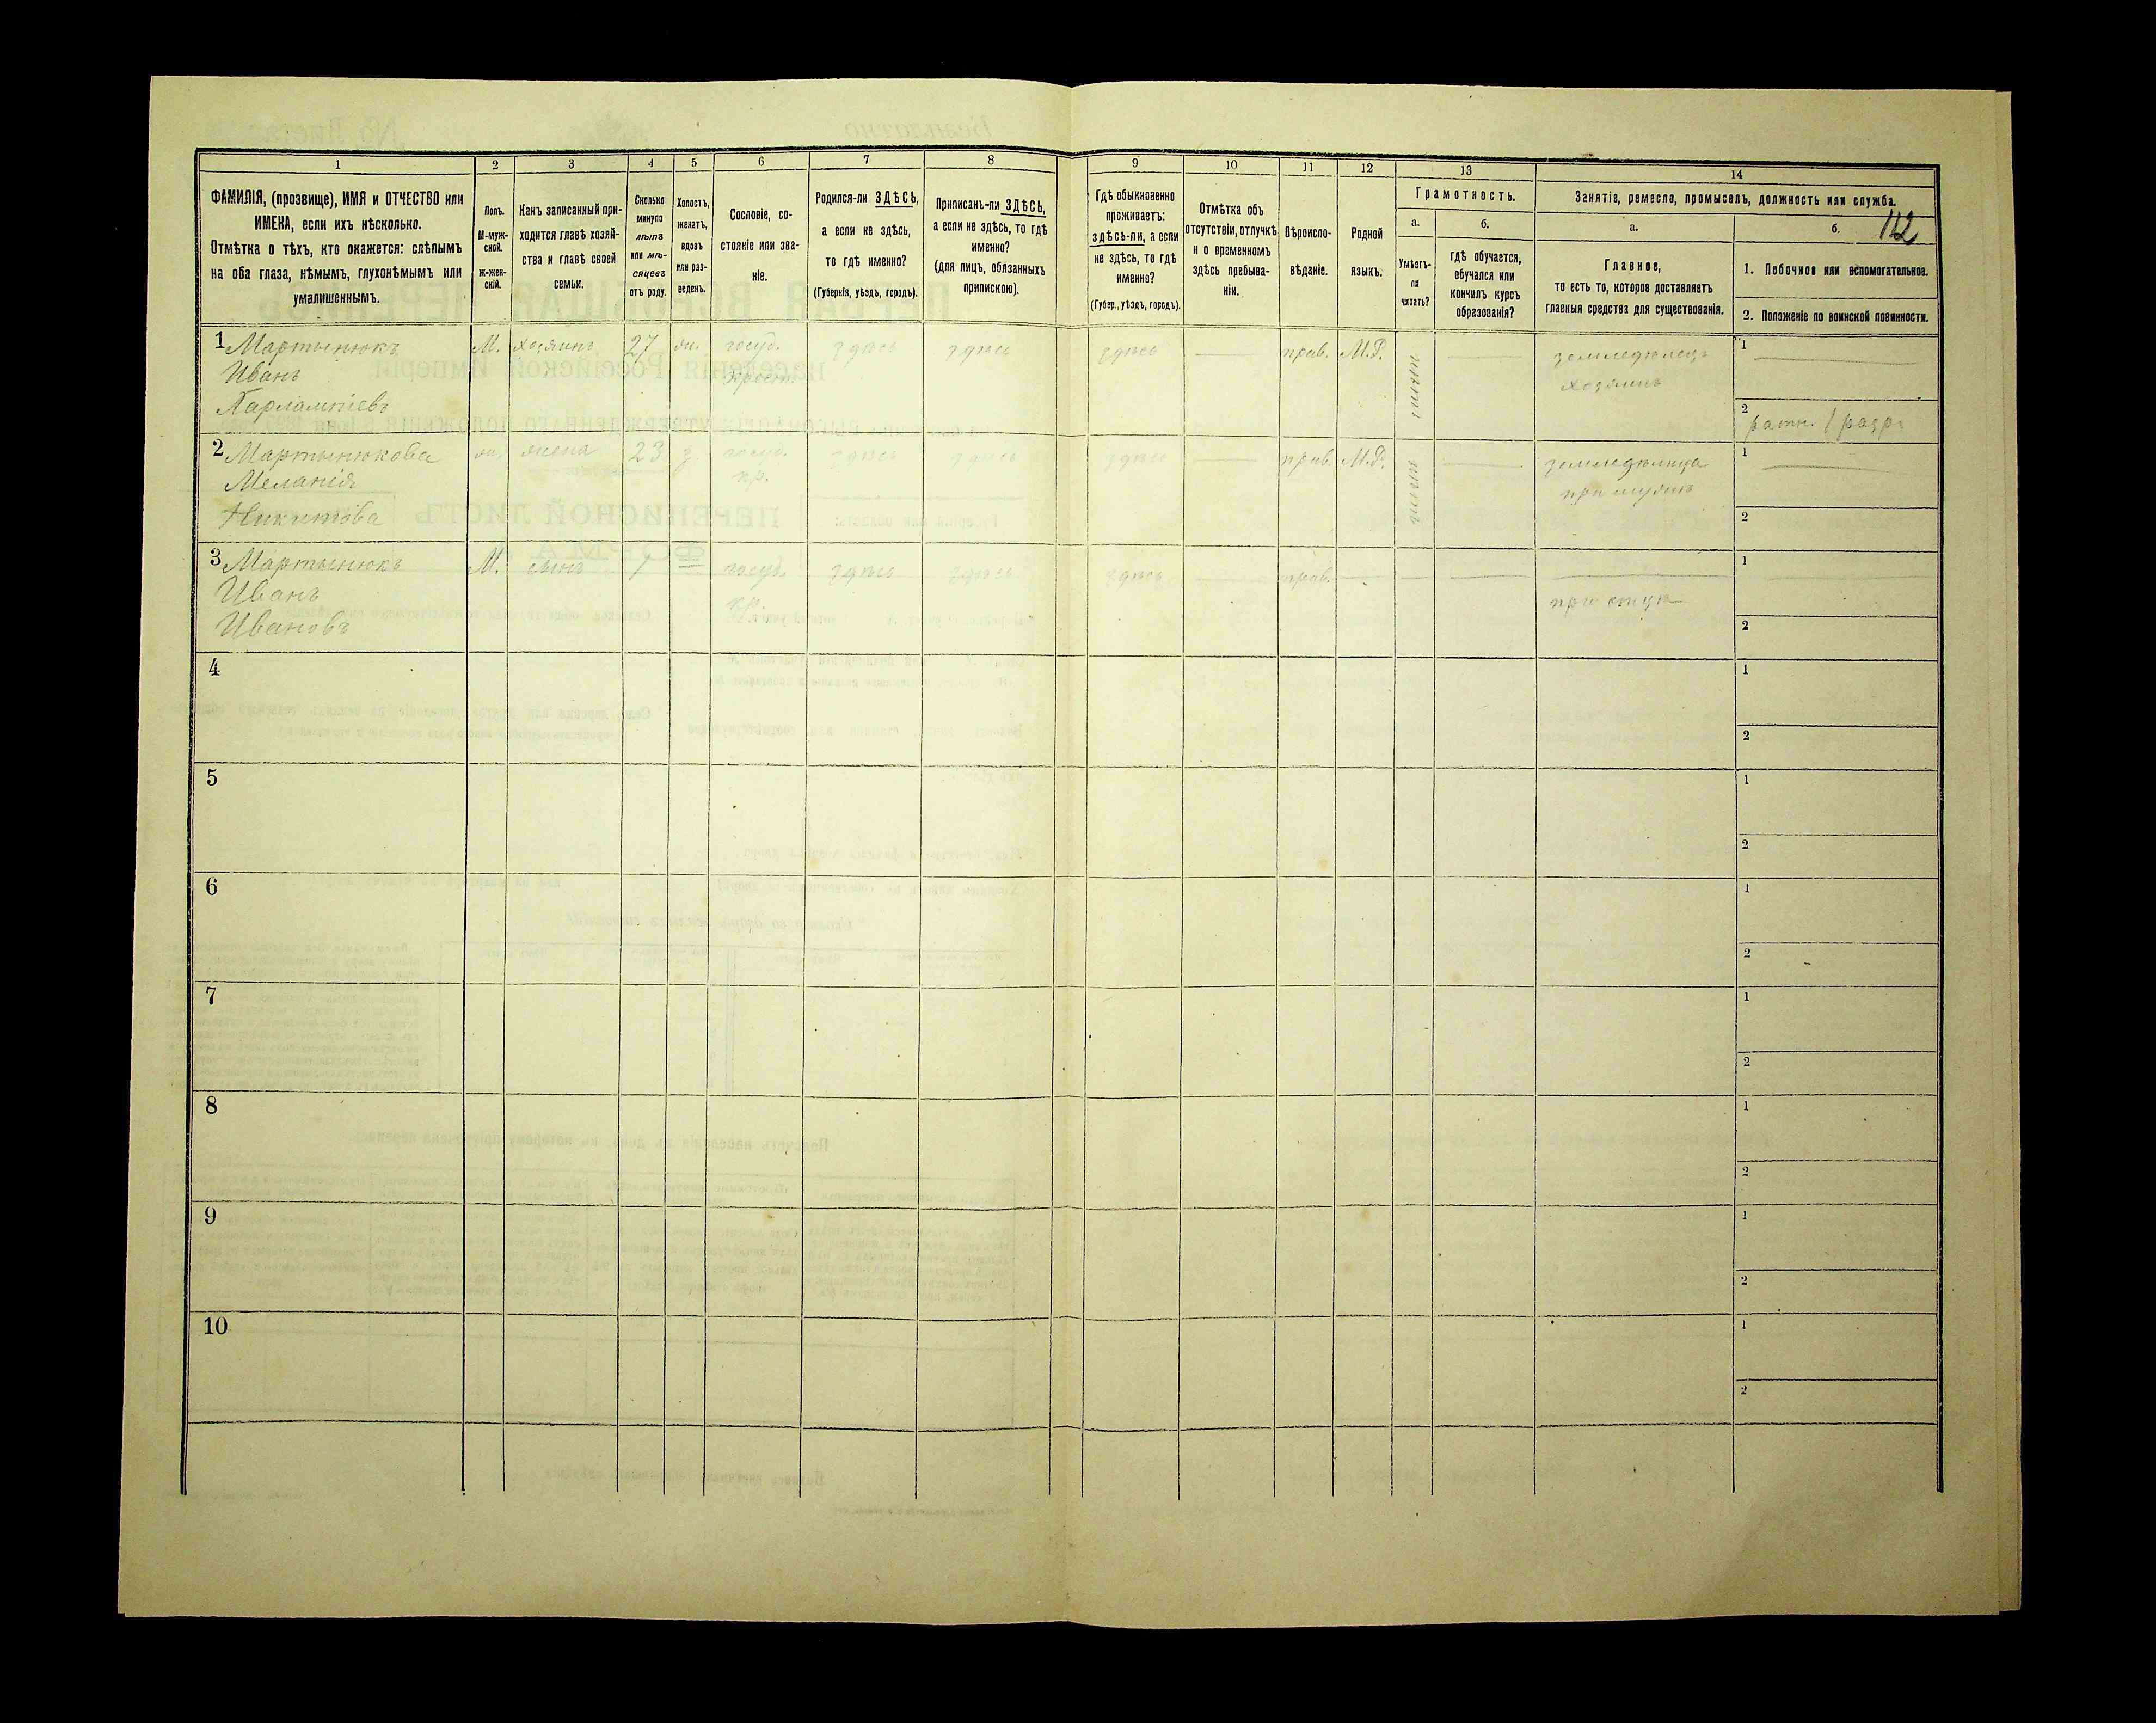 112
1 2 3 4 5 6 7 8 9 10 11 12 13 14
ФАМИЛІЯ, (прозвище), ИМЯ и ОТЧЕСТВО или
ИМЕНА, если ихъ нѣсколько.
Отмѣтка о тѣхъ, кто окажется: слѣпымъ
на оба глаза, нѣмымъ, глухонѣмымъ или
умалишеннымъ.
Полъ.
М-муж-
ской.
ж-жен-
скій.
Какъ записанный при-
ходится главѣ хозяй-
ства и главѣ своей
семьи.
Сколько
минуло
лѣтъ
или мѣ-
сяцевъ
отъ роду.
Холостъ,
женатъ,
вдовъ
или раз-
веденъ.
Сословіе, со-
стояніе или зва-
ніе.
Родился-ли ЗДѢСЬ,
а если не здѣсь,
то гдѣ именно?
(Губернія, уѣздъ, городъ).
Приписанъ-ли ЗДѢСЬ,
а если не здѣсь, то гдѣ
именно?
(для лицъ, обязанныхъ
припискою).
Гдѣ обыкновенно
проживаетъ:
здѣсь-ли, а если
не здѣсь, то гдѣ
именно?
(Губер., уѣздъ, городъ).
Отмѣтка объ
отсутствіи, отлучкѣ
и о временномъ
здѣсь пребыва-
ніи.
Вѣроиспо-
вѣданіе.
Родной
языкъ.
Грамотность.
а.
Умѣетъ-
ли
читать?
б.
гдѣ обучается,
обучался или
кончилъ курсъ
образованія?
Занятіе, ремесло, промыселъ, должность или служба.
а.
Главное,
то есть то, которое доставляетъ
главныя средства для существованія.
б.
1. Побочное или вспомогательное.
2. Положеніе по воинской повинности.
1 Мартынюкъ М. хозяинъ 27 ж. госуд. здѣсь здѣсь здѣсь — прав. М.Р. — земледѣлецъ 1 —
Иванъ крест. хозяинъ
Харлампіевъ 2 ратн. 1 разр.
2 Мартынюкова ж. жена 23 з. госуд. здѣсь здѣсь здѣсь — прав. М.Р. — земледѣлица 1 —
Меланія кр. при мужѣ
Никитова 2
3 Мартынюкъ М. сынъ 1 = госуд. здѣсь здѣсь здѣсь — прав. — — — — 1 —
Иванъ кр. при отцѣ
Ивановъ 2
4 1
2
5 1
2
6 1
2
7 1
2
8 1
2
9 1
2
10 1
2